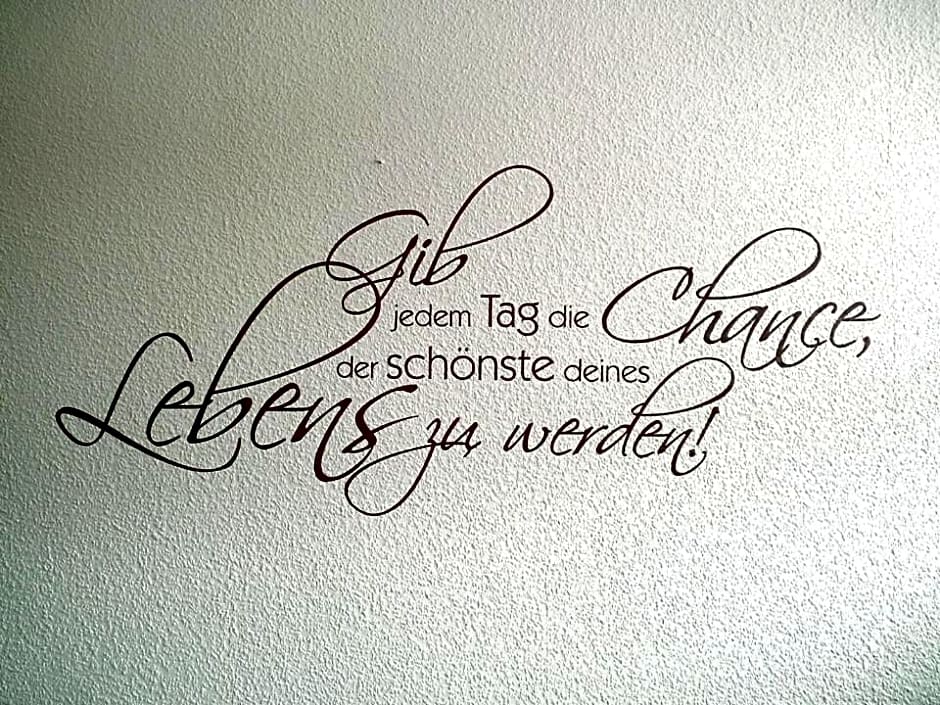 Gib
jedem Tag die Chance,
der schönste deines
Lebens zu werden!